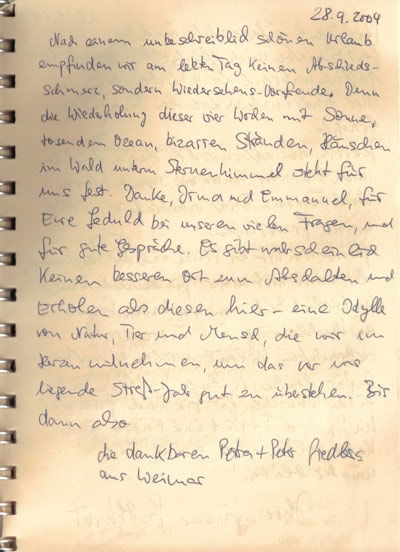 28.9.2009
Nach einem unbeschreiblich schönen Urlaub
empfinden wir am letzten Tag keinen Abschieds-
schmerz, sondern Wiedersehens-Vorfreude. Denn
die Wiederholung dieser vier Wochen mit Sonne,
tosendem Ozean, bizarren Stränden, Häuschen
im Wald unterm Sternenhimmel steht für
uns fest. Danke, Irma und Emmanuel, für
Eure Geduld bei unseren vielen Fragen, und
für gute Gespräche. Es gibt wahrscheinlich
keinen besseren Ort zum Abschalten und
Erholen als diesen hier – eine Idylle
von Natur, Tier und Mensch, die wir im
Herzen mitnehmen, um das vor uns
liegende Streß-Jahr gut zu überstehen. Bis
dann also
die dankbaren Petra + Peter
aus Weimar